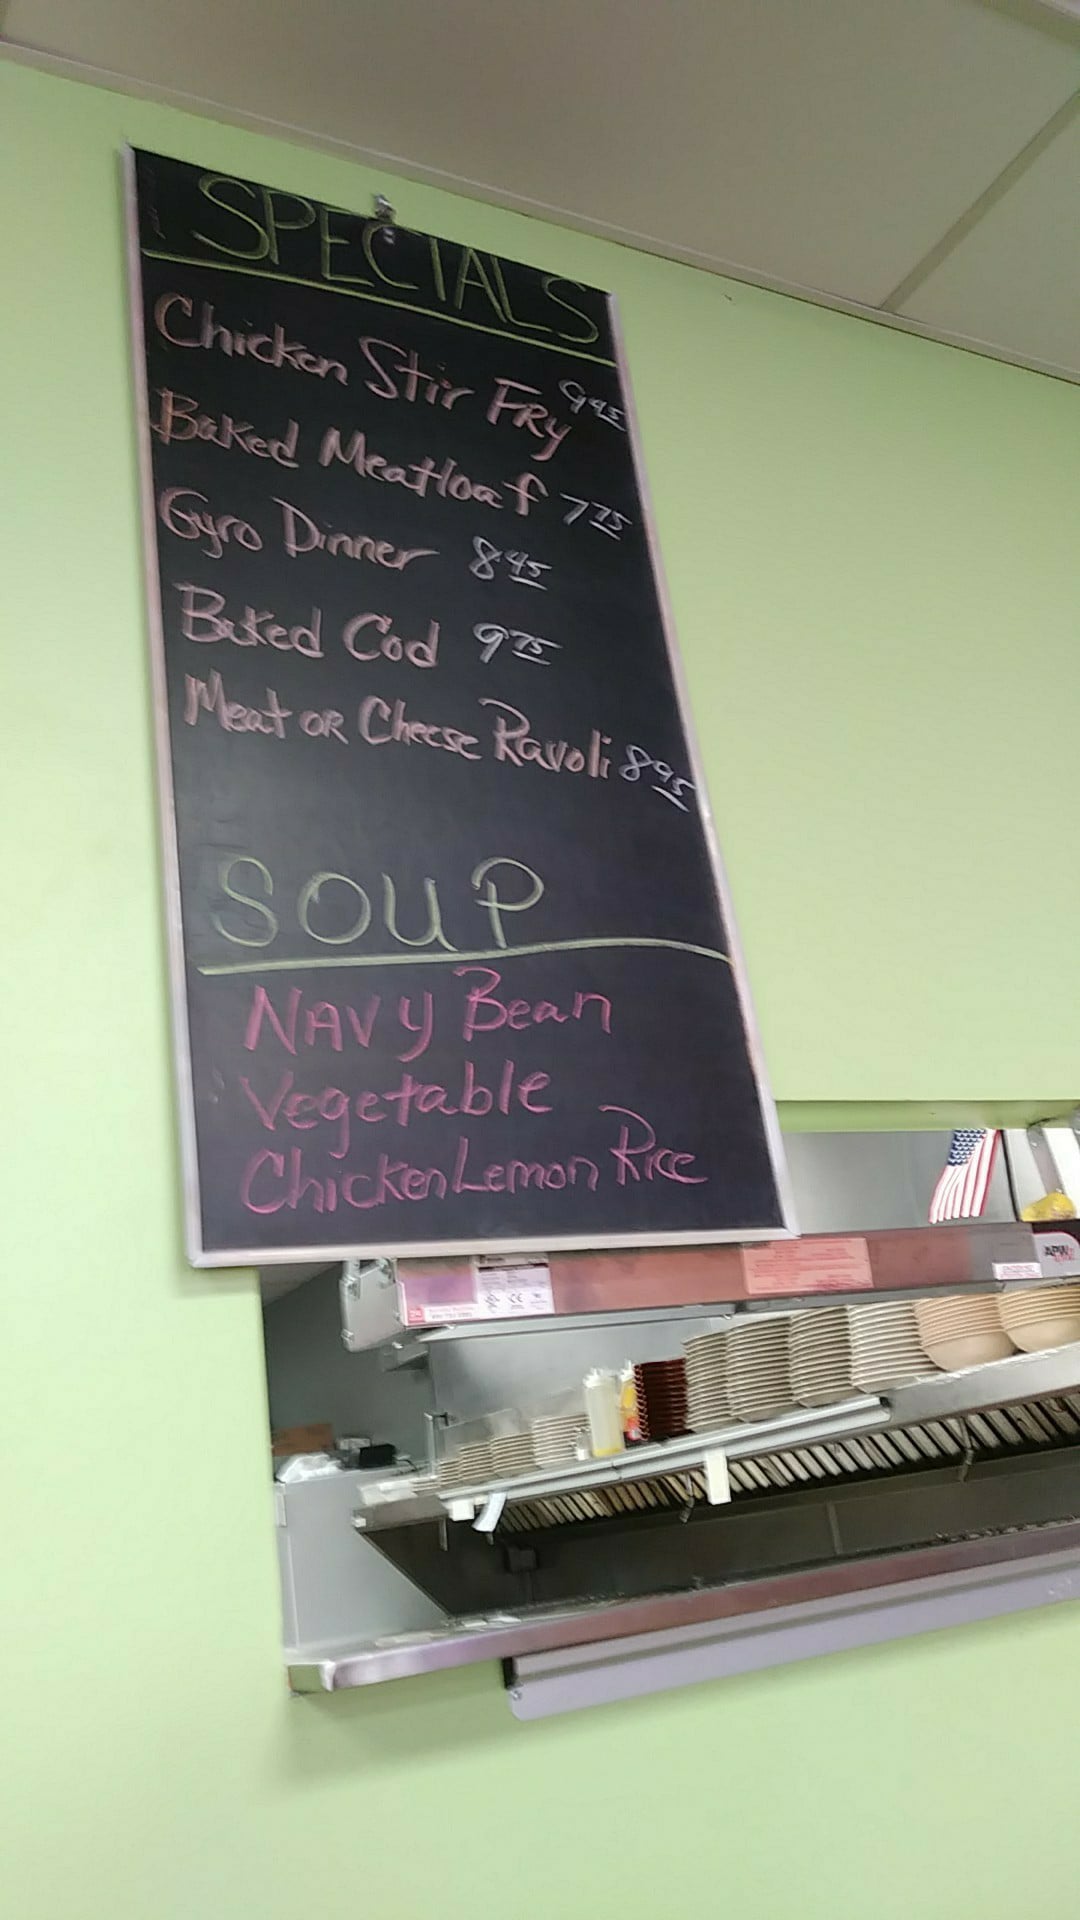 SPECIALS
Chicken Stir FRY 9.45
Baked Meatloaf 7.75
Gyro Dinner 8.45
Baked Cod 9.75
Meat OR Cheese Ravoli 8.95
SOUP
NAVY Bean
Vegetable
Chicken Lemon Rice
APW
CE